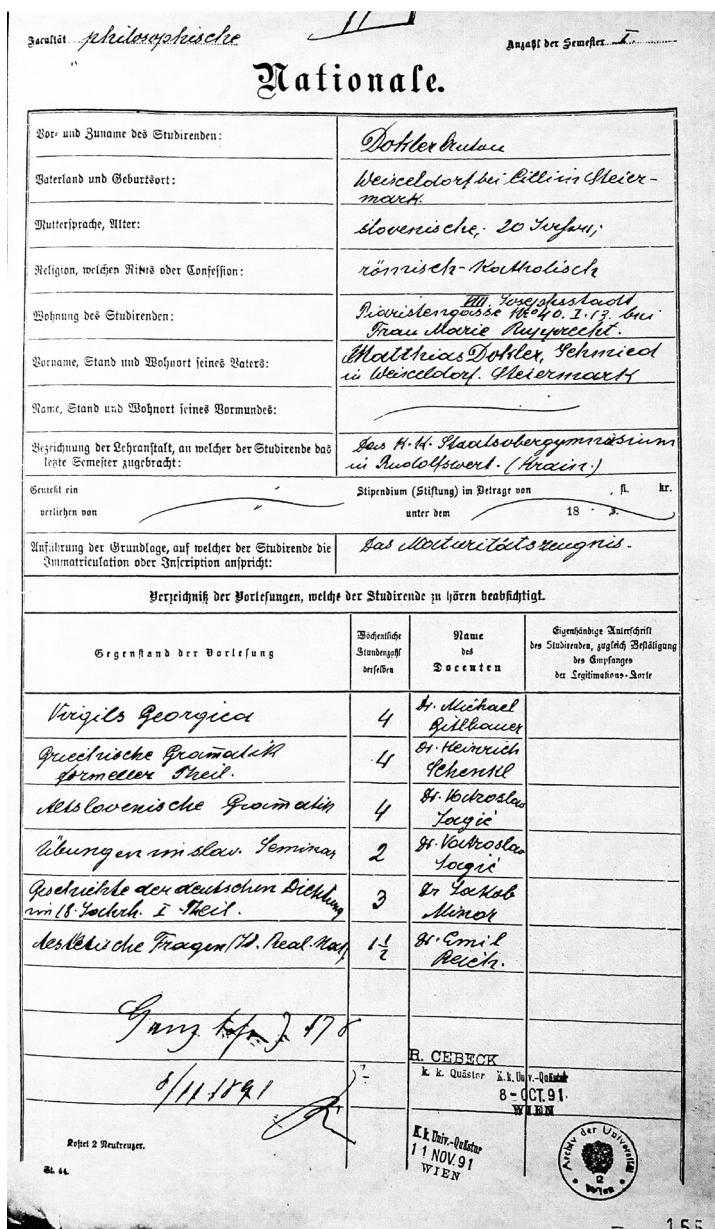 Facultät philosophische
Anzahl der Semester I.
Nationale.
Vor- und Zuname des Studirenden:
Dokler Anton
Vaterland und Geburtsort:
Weixeldorf bei Cilli in Steier-
mark.
Muttersprache, Alter:
slovenische, 20 Jahre;
Religion, welchen Ritus oder Confession:
römisch-katholisch
Wohnung des Studirenden:
VIII. Josephsstadt
Piaristengasse Nro 40. I. 13. bei
Frau Marie Rupprecht.
Vorname, Stand und Wohnort seines Vaters:
Matthias Dokler, Schmied
in Weixeldorf. Steiermark
Name, Stand und Wohnort seines Vormundes:
Bezeichnung der Lehranstalt, an welcher der Studirende das
letzte Semester zugebracht:
Das K. K. Staatsobergymnasium
in Rudolfswert. (Krain.)
Genießt ein
Stipendium (Stiftung) im Betrage von , fl. kr.
verliehen von
unter dem 18
Anführung der Grundlage, auf welcher der Studirende die
Immatriculation oder Inscription anspricht:
Das Maturitätszeugnis.
Verzeichniß der Vorlesungen, welche der Studirende zu hören beabsichtigt.
Gegenstand der Vorlesung
Wöchentliche
Stundenzahl
derselben
Name
des
Docenten
Eigenhändige Unterschrift
des Studirenden, zugleich Bestätigung
des Empfanges
der Legitimations-Karte
Virgils Georgica
4
Dr. Michael
Gitlbauer
Griechische Gram̄atik
formeller Theil.
4
Dr. Heinrich
Schenkl
Altslovenische Gram̄atik
4
Dr. Vatroslav
Jagić
Übungen im slav. Seminar
2
Dr. Vatroslav
Jagić
Geschichte der deutschen Dichtung
im 18. Jahrh. I Theil.
3
Dr Jakob
Minor
Aesthetische Fragen Id. Real. Nat.
1 1/2
Dr. Emil
Reich.
Ganz
8/11 1891
R. CEBECK
k. k. Quästor
K.k. Univ.-Quästur
8-OCT.91.
WIEN
Kostet 2 Neukreuzer.
K.k. Univ.-Quästur
11 NOV.91
WIEN
Archiv der Universität
Wien
St. 64.
155